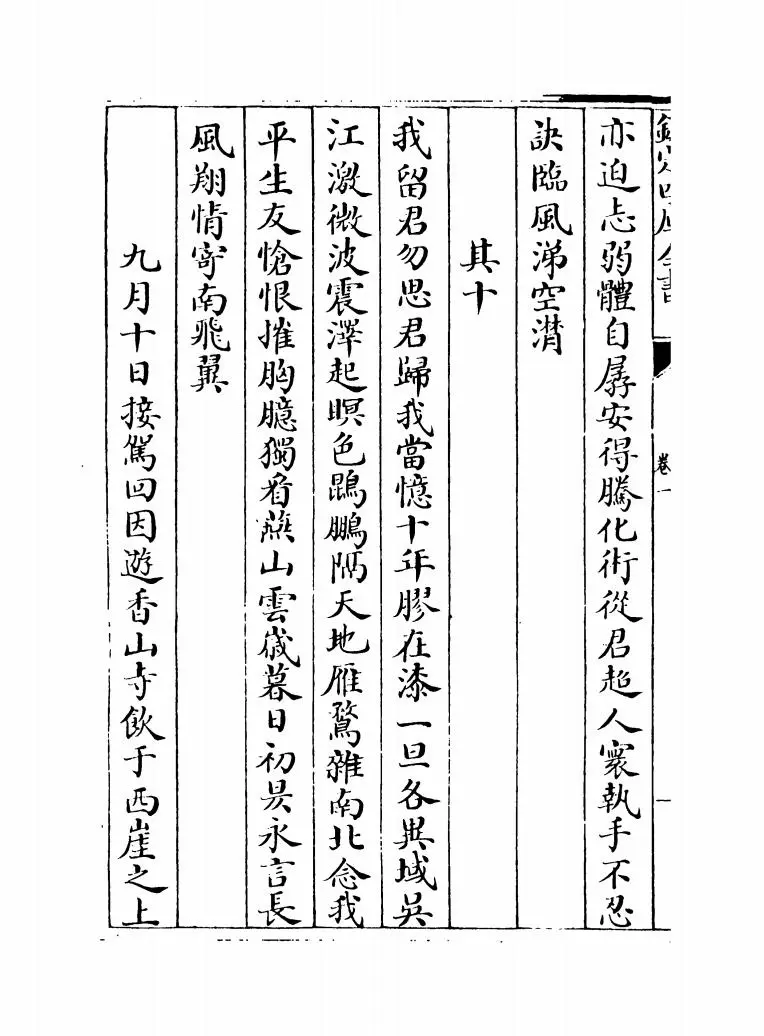 欽定四庫全書
卷一
亦迫志弱體自孱安得騰化術從君超人寰執手不忍
訣臨風涕空潸
其十
我留君勿思君歸我當憶十年膠在漆一旦各異域吳
江激微波震澤起暝色鵾鵬隔天地雁鶩雜南北念我
平生友愴恨摧胸臆獨看燕山雲歲暮日初昃永言長
風翔情寄南飛翼
九月十日接駕回因遊香山寺飲于西崖之上